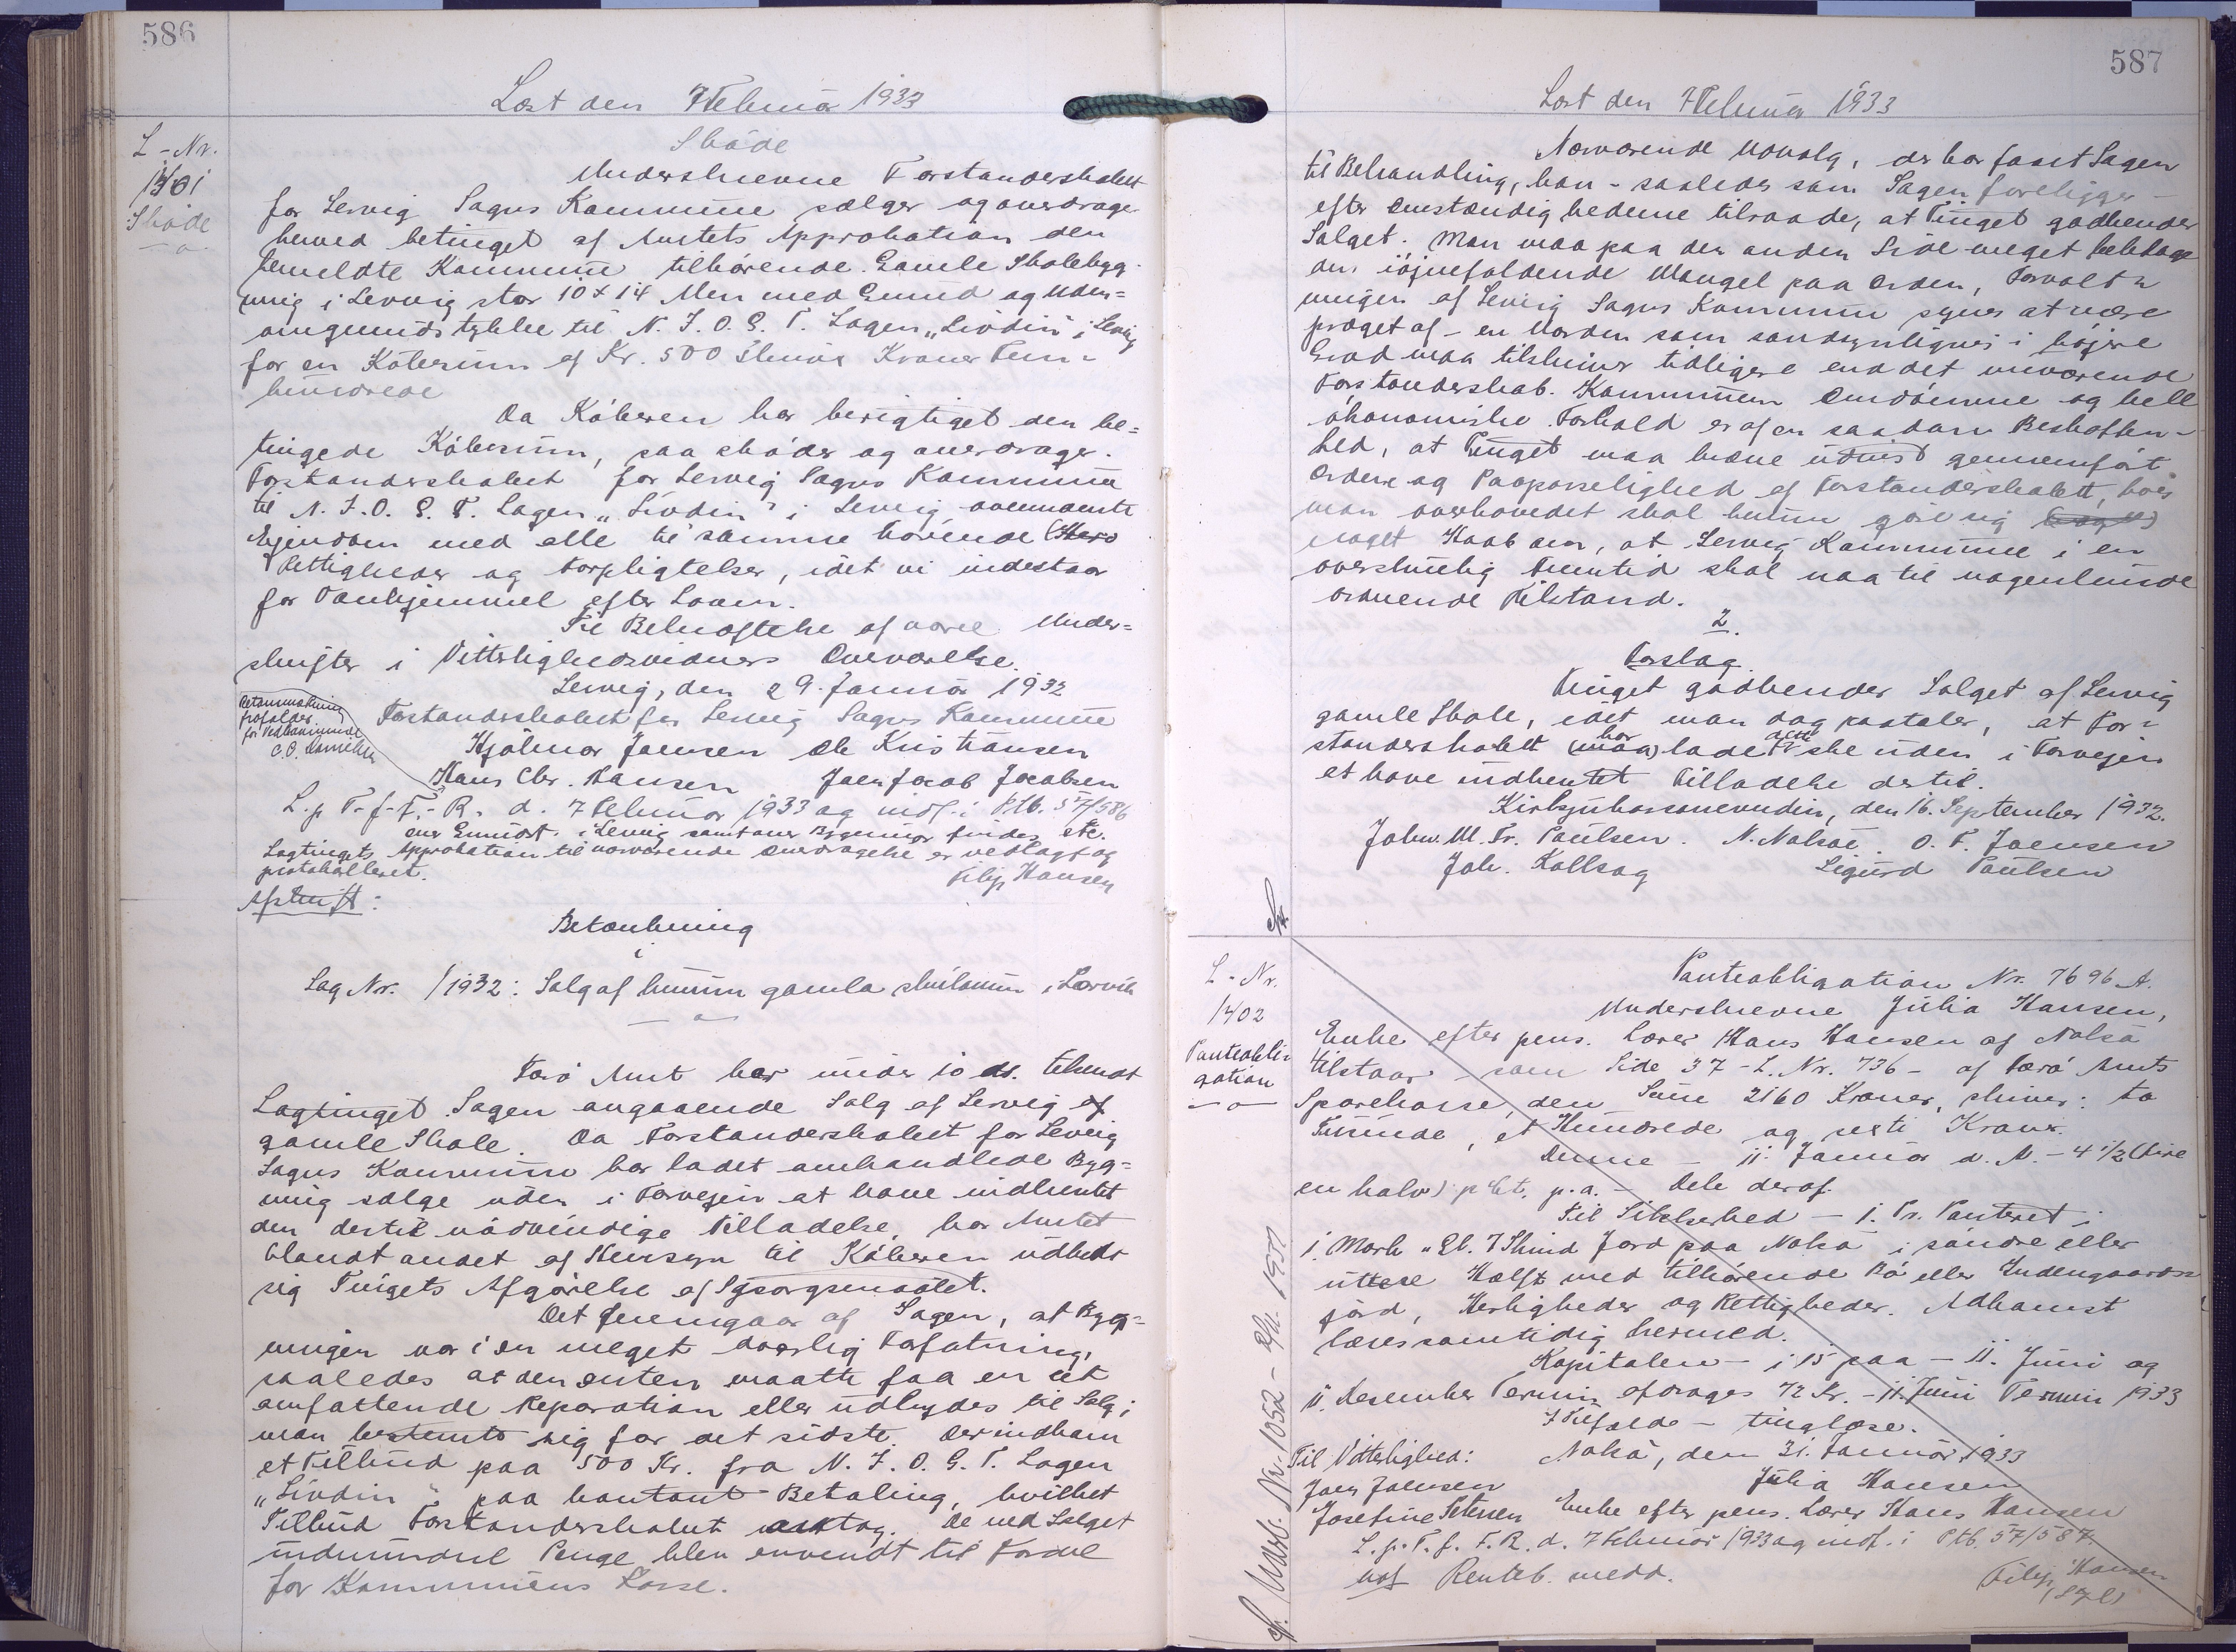 586
Læst den 7 Februar 1933
L-Nr.
1401
Skøde
Skøde
Underskrevne Forstanderskabet
for Lervig Sogns Kommune sælger og overdrager
herved betinget af Amtets Approbation den
bemeldte Kommune tilhørende Gamle Skolebyg-
ning i Lervig stor 10 x 14 Alen med Grund og Uden-
omgrundstykke til N. I. O. G. T. Logen „Lívdin" i Lervig
for en Købesum af Kr. 500 skriver Kroner Fem-
hundrede
Da Køberen har berigtiget den be-
tingede Købesum, saa skøder og overdrager
Forstanderskabet for Lervig Sogns Kommune
til N. I. O. G. T. Logen „Lívdin" i Lervig ovennævnte
Ejendom med alle til samme hørende
Rettigheder og Forpligtelser, idet vi indestaar
for Vanhjemmel efter Loven.
Til Bekræftelse af vores Under-
skrifter i Vitterlighedsvidners Overværelse.
Lervig, den 29. Januar 1932
Forstanderskabet for Lervig Sogns Kommune
Hjalmar Joensen Ole Kristiansen
Hans Chr. Hansen Joen Jacob Jacobsen
L. p T. f. F. R. d. 7 Februar 1933 og indf. i Ptb. 57/586
Lagtingets Approbation til nærværende Overdragelse er vedlagt og
protokolleret.
Filip Hansen
Afskrift:
Betænkning
i
Sag Nr. /1932: Salg af hinum gamla skúlanum í Lorvík
Færø Amt har under 10 ds. tilsendt
Lagtinget Sagen angaaende Salg af Lervig
gamle Skole. Da Forstanderskabet for Lervig
Sogns Kommune har ladet omhandlede Byg-
ning sælge uden i Forvejen at have indhentet
den dertil nødvendige Tilladelse, har Amtet
blandt andet af Hensyn til Køberen udbedt
sig Tingets Afgørelse af Spørgsmaalet.
Det fremgaar af Sagen, at Byg-
ningen var i en meget daarlig Forfatning,
saaledes at den enten maatte faa en ret
omfattende Reparation eller udbydes til Salg;
man bestemte sig for det sidste. Der indkom
et Tilbud paa 500 Kr. fra N. I. O. G. T. Logen
„Lívdin" paa kontant Betaling, hvilket
Tilbud Forstanderskabet modtog. De ved Salget
indvundne Penge blev anvendt til Fordel
for Kommunens Kasse.
587
Læst den 7 Februar 1933
Nærværende Udvalg, der har faaet Sagen
til Behandling, kan - saaledes som Sagen foreligger -
efter Omstændighederne tilraade, at Tinget godkender
Salget. Man maa paa den anden Side meget beklage
den iøjnefaldende Mangel paa Orden, Forvalt-
ningen af Lervig Sogns Kommune synes at være
præget af - en Uorden som sandsynligvis i højere
Grad maa tilskrives tidligere end det nuværende
Forstanderskab. Kommunens Omdømme og hele
økonomiske Forhold er af en saadan Beskaffen-
hed, at Tinget maa kræve udvist gennemført
Orden og Paapasselighed af Forstanderskabet, hvis
man overhovedet skal kunne gøre sig
noget Haab om, at Lervig Kommune i en
overskuelig Fremtid skal naa til nogenlunde
ordnende Tilstand.
2.
Forslag.
Tinget godkender Salget af Lervig
gamle Skole, idet man dog paataler, at For-
standerskabet har ladet dette ske uden i Forvejen
at have indhentet Tilladelse dertil.
Kirkjubøur, den 16. September 1932.
Johs. M. Fr. Poulsen. N. Nolsøe. O. F. Joensen
Joh. Kallsoy Sigurd Poulsen
L-Nr.
1402
Panteobli-
gation
Panteobligation Nr. 7696 A.
Underskrevne Julia Hansen,
Enke efter pens. Lærer Hans Hansen af Nolsø
tilstaar - som Side 37 - L. Nr. 736 - af Færø Amts
Sparekasse, den Sum 2160 Kroner, skriver: to
Tusinde, et Hundrede og seksti Kroner.
Denne - 11. Januar d. A. - 4 1/2 (fire
en halv) pCt. p. a. - Dele deraf.
Til Sikkerhed - 1. Pr. Panteret i
1 Mark „Gl. 7 Skind Jord paa Nolsø i søndre eller
uttere Hælft med tilhørende Bø eller Indengaards-
jord, Herligheder og Rettigheder. Adkomst
læses samtidig hermed.
Kapitalen - i 15 paa - 11. Juni og
11. Desember Termin afdrages 72 Kr. - 11. Juni Termin 1933
I Tilfælde - tinglæse.
Til Vitterlighed: Nolsø, den 31. Januar 1933
Joen Joensen Julia Hansen
Josefine Petersen Enke efter pens. Lærer Hans Hansen
L. p. T. f. F. R. d. 7 Februar 1933 og indf. i Ptb. 57/587.
Renteb. medd.
Filip Hansen